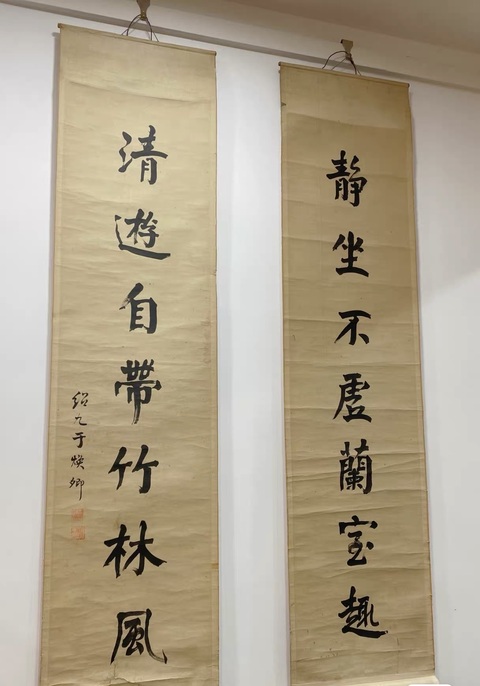 靜坐不虛蘭室趣
清遊自帶竹林風
紹九于煥卿